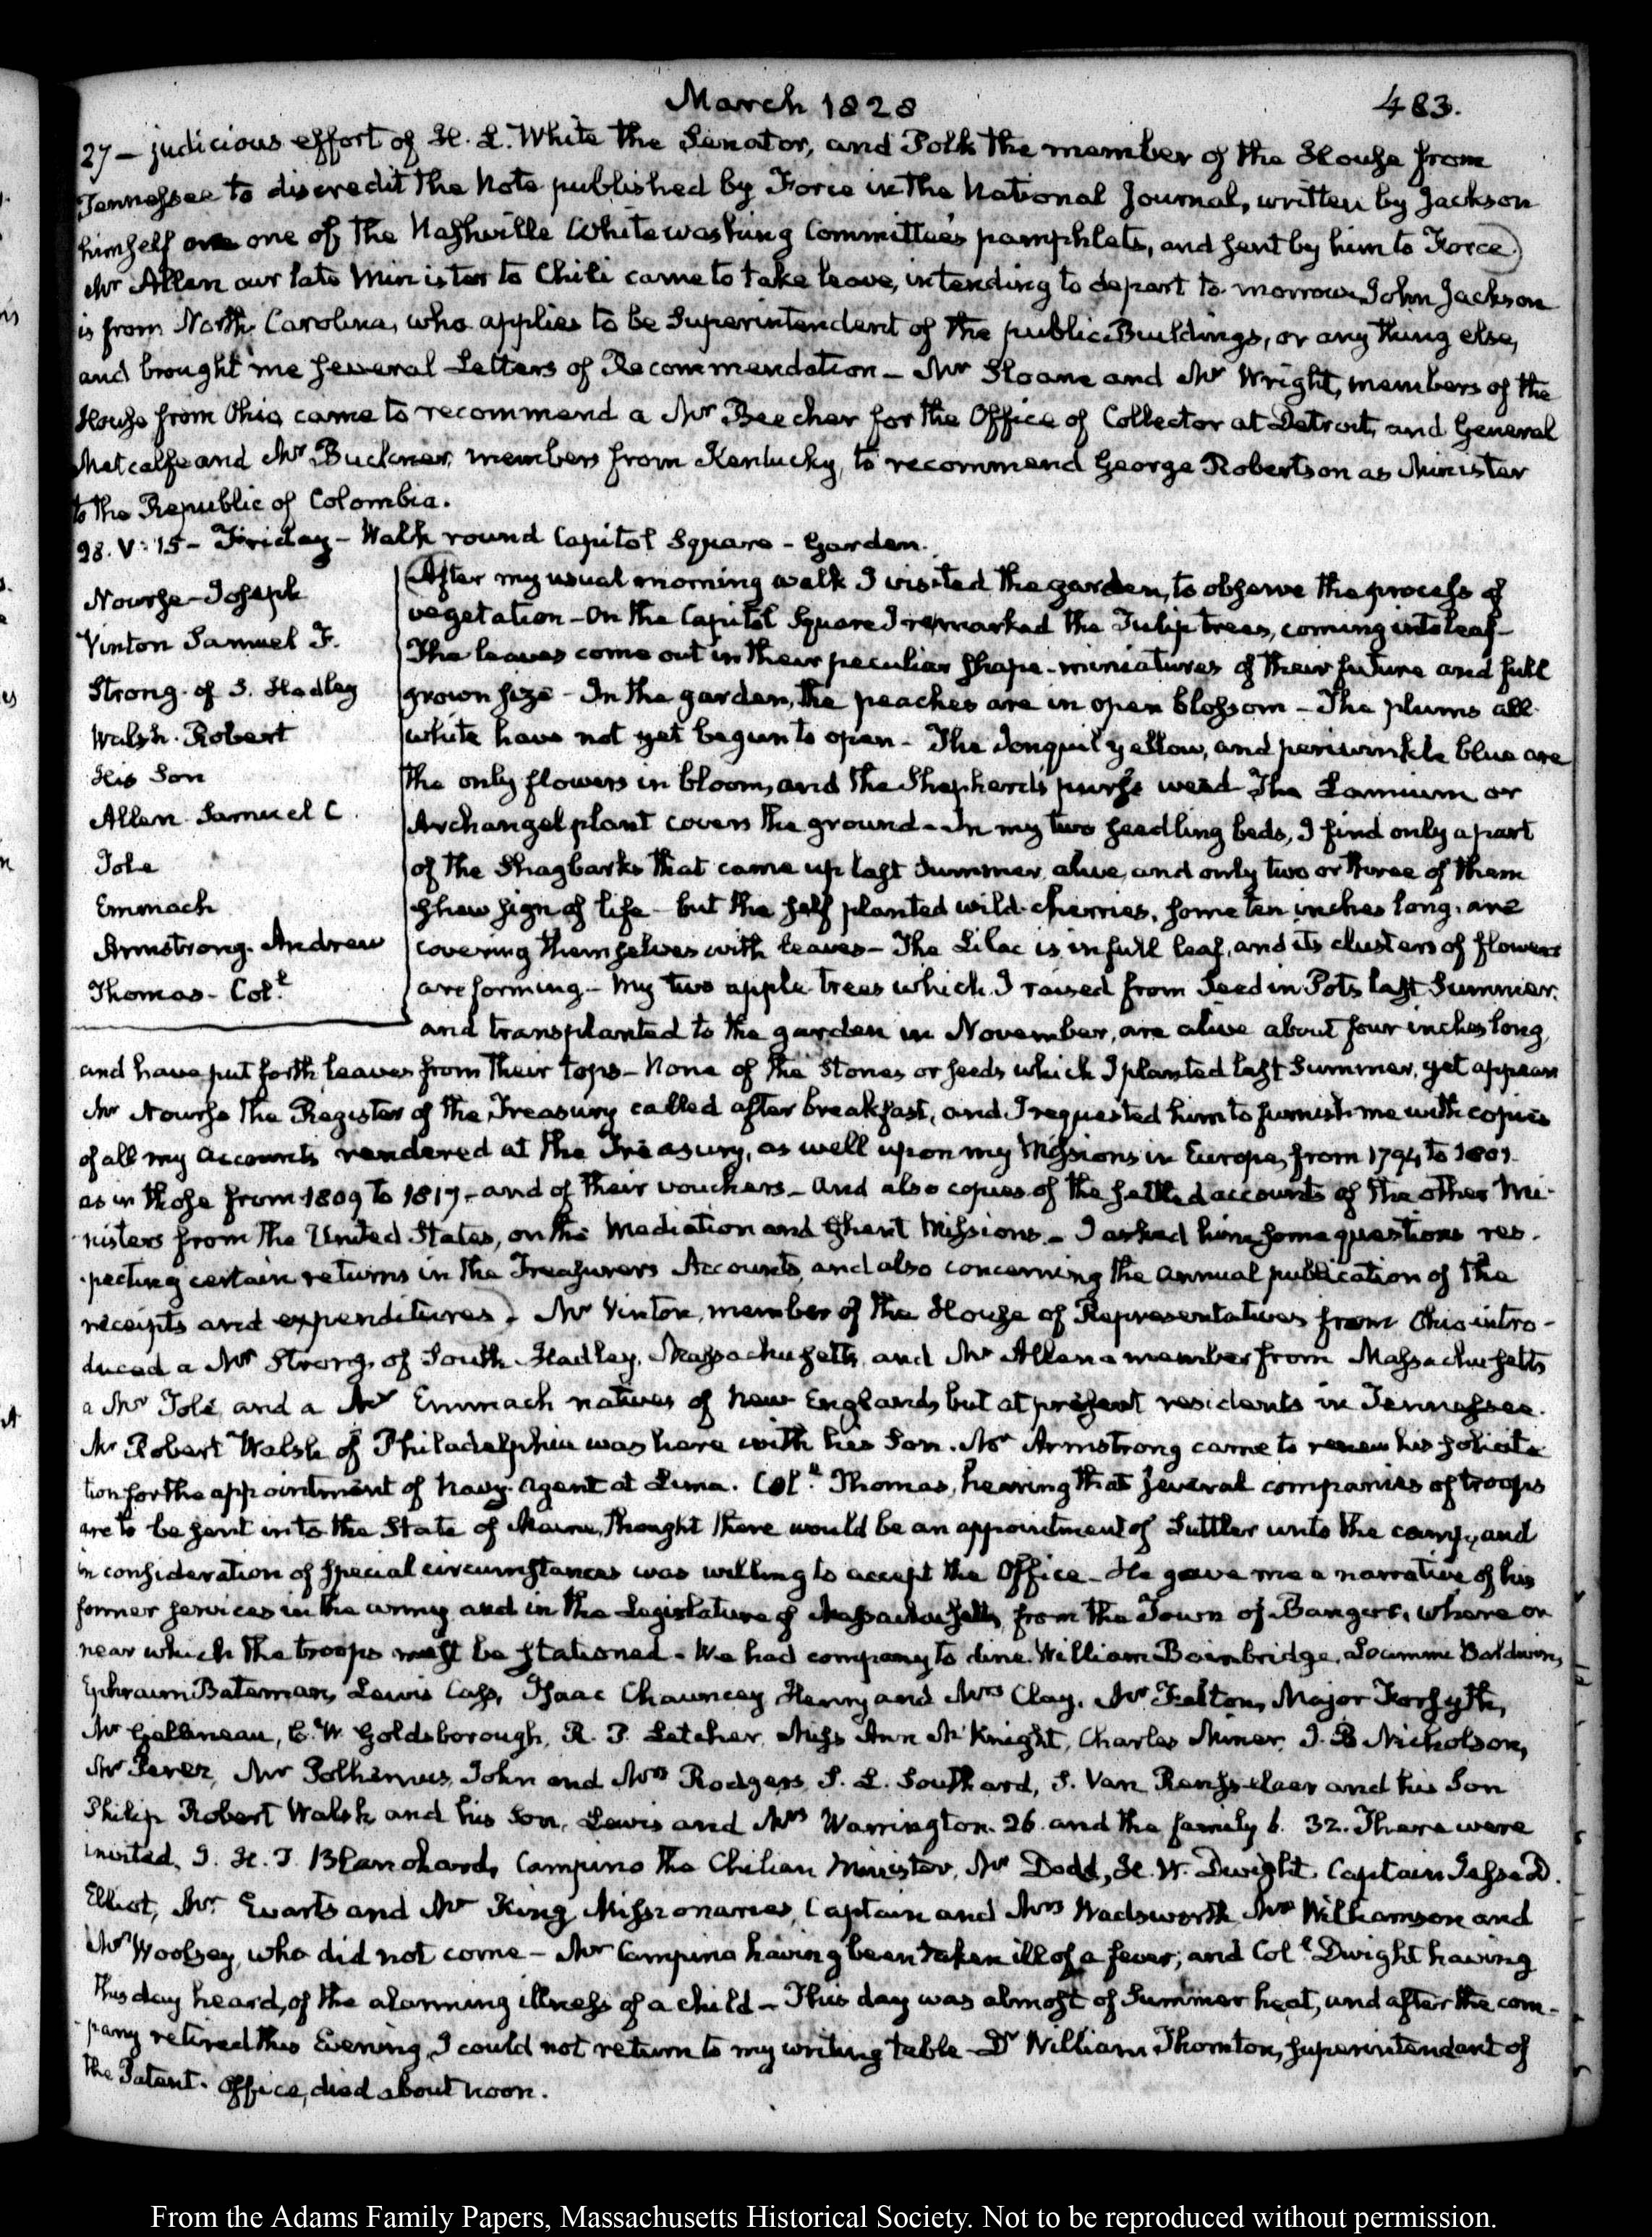 March 1828
483.
27 — judicious effort of H. L. White the Senator, and Polk the member of the House from
Tennessee to discredit the Note published by Force in the National Journal, written by Jackson
himself one of the Nashville Whitewashing Committee's pamphlets, and sent by him to Force)
Mr Allen our late Minister to Chili came to take leave, intending to depart to-morrow. John Jackson
is from North Carolina, who applies to be Superintendent of the public Buildings, or any thing else,
and brought me several Letters of Recommendation — Mr Sloane and Mr Wright, members of the
House from Ohio came to recommend a Mr Beecher for the Office of Collector at Detroit, and General
Metcalfe and Mr Buckner, members from Kentucky, to recommend George Robertson as Minister
to the Republic of Colombia.
28. V:15 — Friday — Walk round Capitol Square — Garden.
Nourse — Joseph
Vinton Samuel F.
Strong. of S. Hadley
Walsh. Robert
His Son
Allen. Samuel C.
Tole
Emmach
Armstrong. Andrew
Thomas — Col.l
(After my usual morning walk I visited the garden, to observe the process of
vegetation — On the Capitol Square I remarked the Tulip trees, coming into leaf —
The leaves come out in their peculiar shape — miniatures of their future and full
grown size — In the garden, the peaches are in open blossom — The plums all
white have not yet begun to open — The Jonquil yellow, and periwinkle blue are
the only flowers in bloom, and the Shepherd's purse weed The Lamium or
Archangel plant covers the ground — In my two seedling beds, I find only a part
of the Shagbarks that came up last Summer, alive, and only two or three of them
shew sign of life — but the self planted wild-cherries, some ten inches long, are
covering themselves with leaves — The Lilac is in full leaf, and its clusters of flowers
are forming — My two apple trees which I raised from Seed in Pots last Summer,
and transplanted to the garden in November, are alive about four inches long,
and have put forth leaves from their tops — None of the Stones or seeds which I planted last Summer, yet appear
Mr Nourse the Register of the Treasury called after breakfast, and I requested him to furnish me with copies
of all my accounts rendered at the Treasury, as well upon my Missions in Europe, from 1794 to 1801.
as in those from 1809 to 1817 — and of their vouchers — and also copies of the settled accounts of the other Mi-
nisters from the United States, on the Mediation and Ghent Missions — I asked him some questions res-
pecting certain returns in the Treasurers Accounts, and also concerning the annual publication of the
receipts and expenditures). Mr Vinton, member of the House of Representatives from Ohio intro-
duced a Mr Strong, of South Hadley, Massachusetts, and Mr Allen a member from Massachusetts
a Mr Tole, and a Mr Emmach natives of New England, but at present residents in Tennessee.
Mr Robert Walsh of Philadelphia was here with his Son. Mr Armstrong came to renew his solicita-
tion for the appointment of Navy-Agent at Lima. Col.l Thomas, hearing that several companies of troops
are to be sent into the State of Maine, thought there would be an appointment of Suttler unto the camp, and
in consideration of special circumstances was willing to accept the Office — He gave me a narrative of his
former services in the army and in the Legislature of Massachusetts, from the Town of Bangor, where or
near which the troops must be stationed. We had company to dine. William Bainbridge, Loammi Baldwin,
Ephraim Bateman, Lewis Cass, Isaac Chauncey, Henry and Mrs Clay, Mr Felton, Major Forsyth,
Mr Gallineau, C. W. Goldsborough, R. P. Letcher, Miss Ann McKnight, Charles Miner, J. B Nicholson,
Mr Perez, Mr Polhemus, John and Mrs Rodgers, S. L. Southard, S. Van Rensselaer and his Son
Philip Robert Walsh and his Son, Lewis and Mrs Warrington. 26. and the family 6. 32. There were
invited, I. H. T. Blanchard, Campino the Chilian Minister, Mr Dodd, H. W. Dwight. Captain Jesse D.
Elliot, Mr Evarts and Mr King Missionaries, Captain and Mrs Wadsworth Mr Williamson and
Mr Woolsey, who did not come — Mr Campino having been taken ill of a fever; and Col.l Dwight having
this day heard, of the alarming illness of a child — This day was almost of Summer heat, and after the com-
pany retired this Evening, I could not return to my writing table — Dr William Thornton, Superintendent of
the Patent-Office, died about noon.
From the Adams Family Papers, Massachusetts Historical Society. Not to be reproduced without permission.